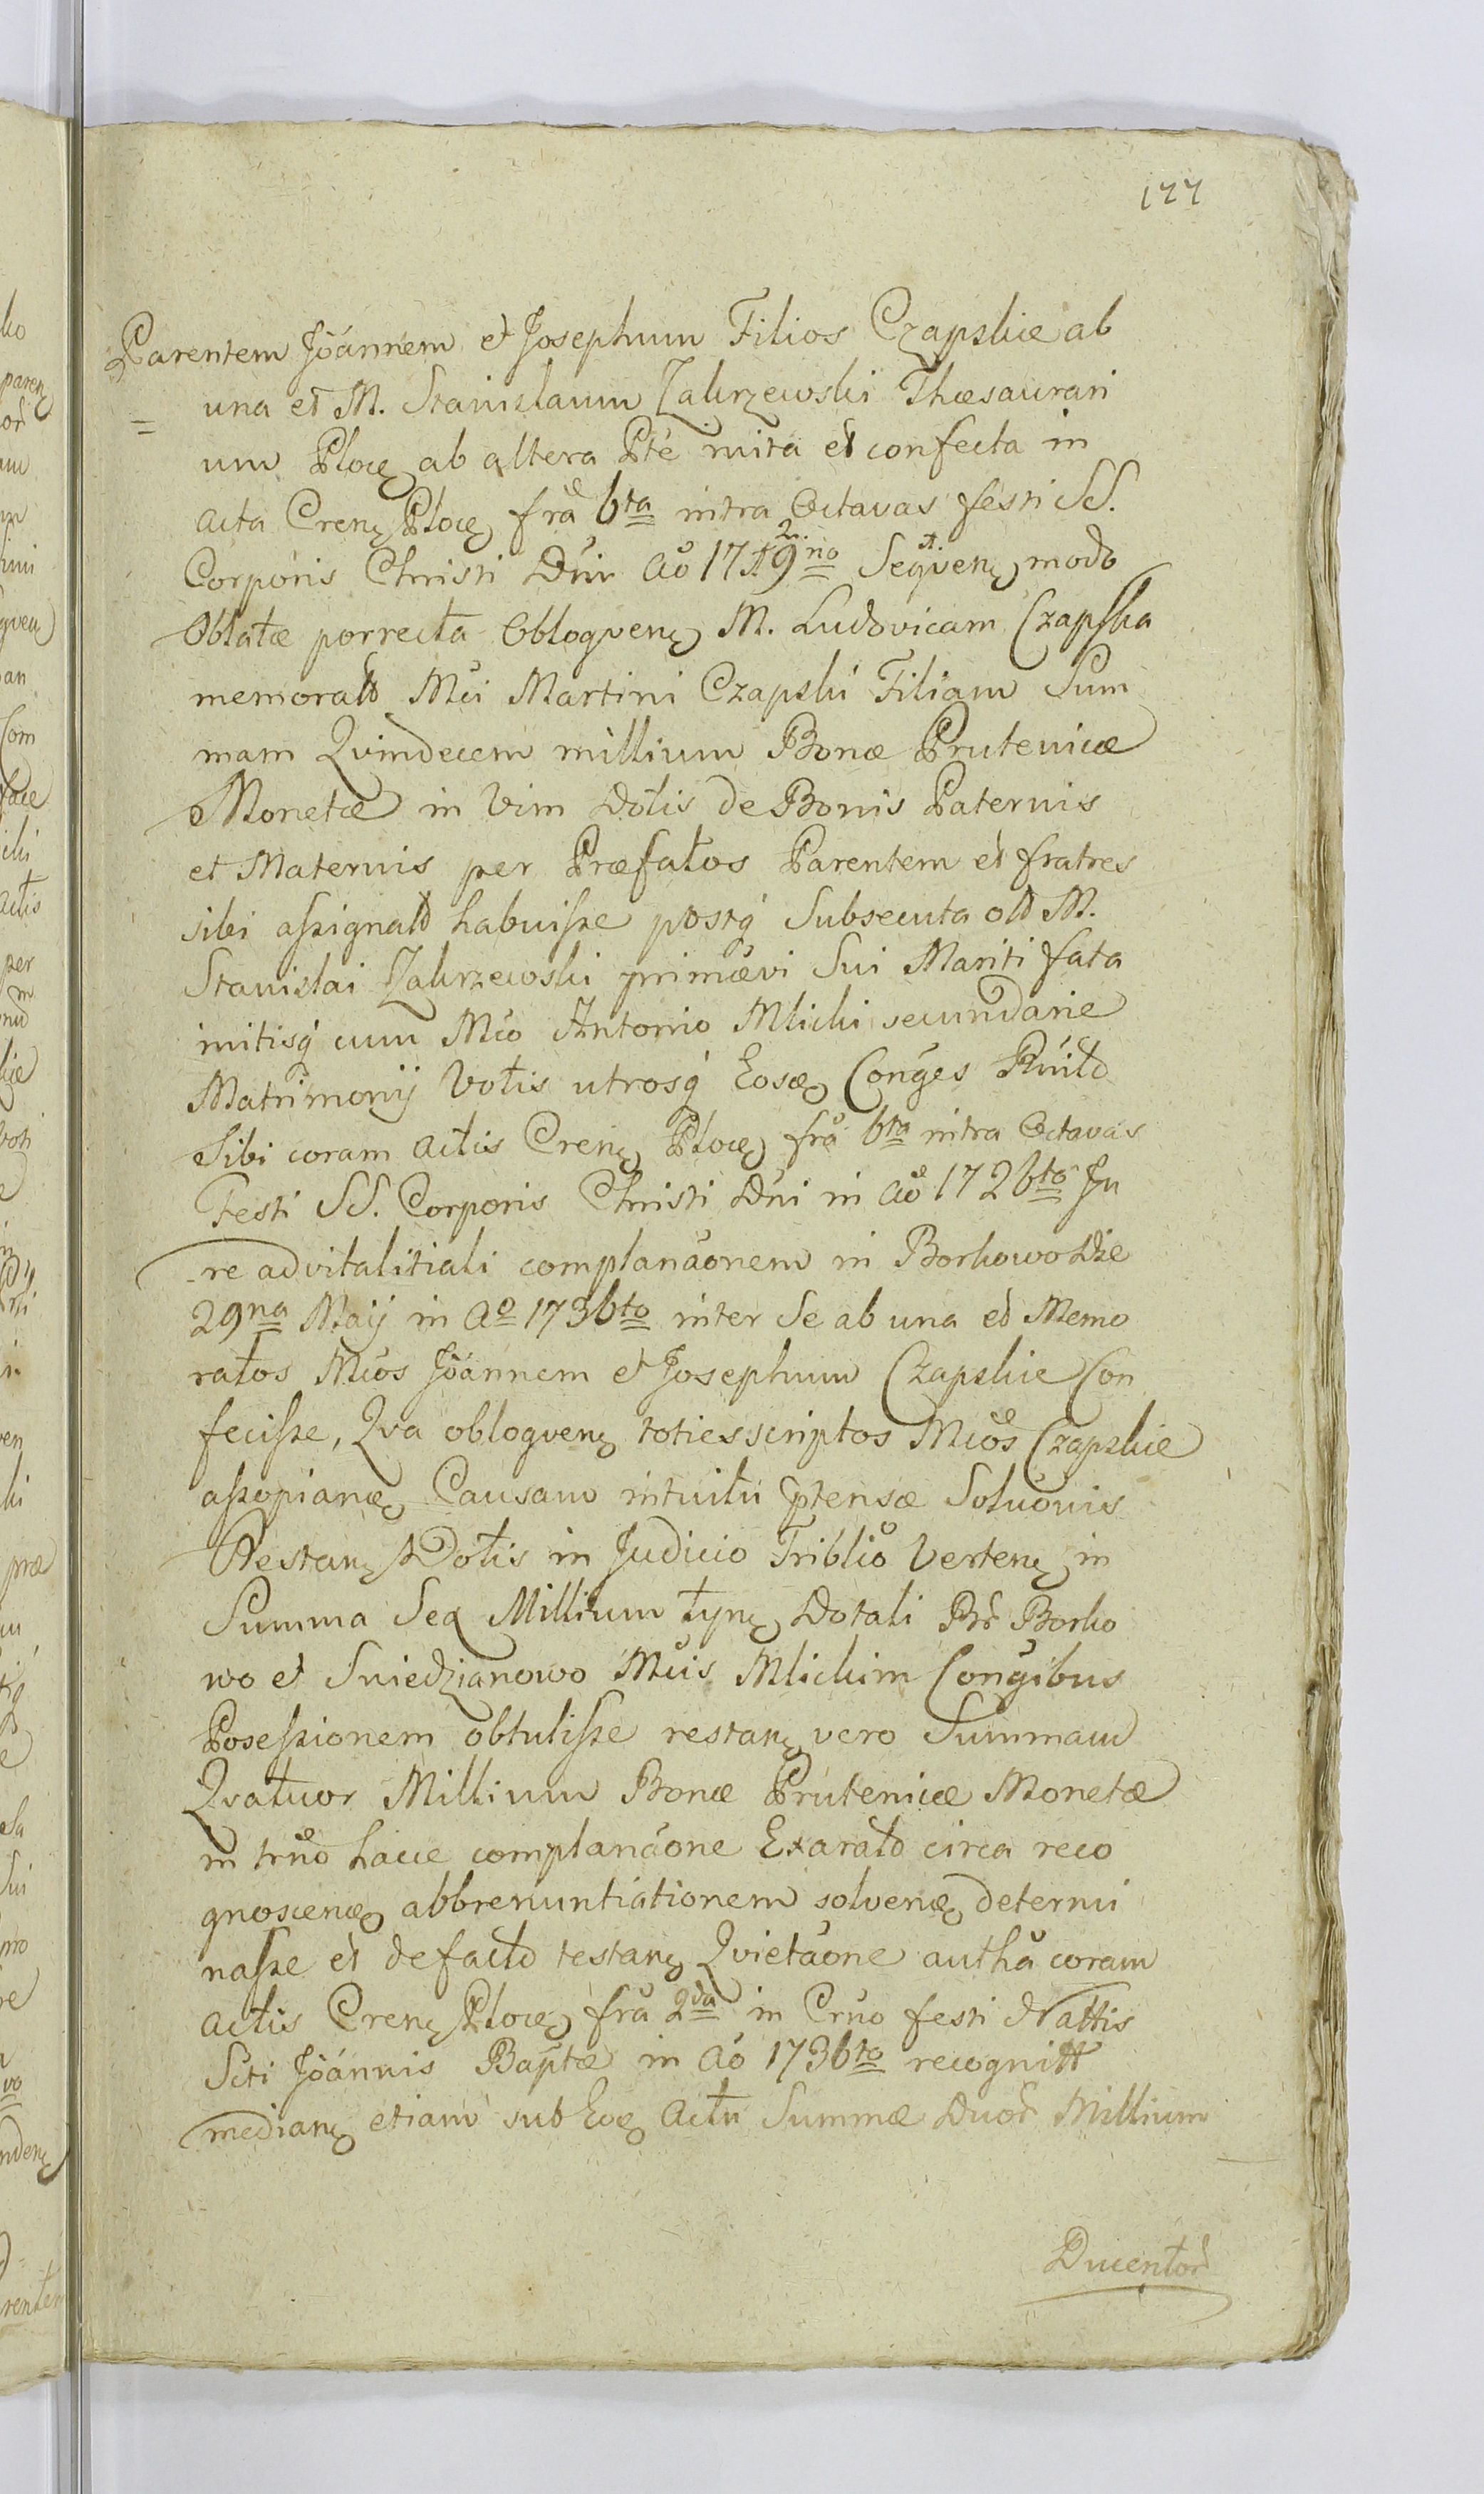 177
Parentem Joánnem et Josephum Filios Czapskie ab
una et M. Stanislaum Zakrzewski Thæsaurari
= um Ploc ab altera Pte inita et confecta in
acta Cren Ploc fra 6ta intra Octavas festi SS.
Corporis Christi Dni Ao 1729no Sequen modo
Oblatæ porrecta Obloqven M. Ludovicam Czapska
memorat Mci Martini Czapski Filiam Sum
mam Qvindecem millium Bonæ Prutenicæ
Monetæ in Vim Dotis de Bonis Paternis
et Maternis per Præfatos Parentem et fratres
sibi assignat habuisse postq Subsecuta olt M.
Stanislai Zakrzewski primævi Sui Mariti fata
initisq cum Mco Antonio Mlicki secundarie
Matrimonij Votis utrosq Eos Conges
Sibi coram Actis Cren Ploc fra 6ta intra Octavas
Festi SS. Corporis Christi Dni in Ao 1726to Ju
re advitalitiali complanaonem in Borkowo Die
29na Maij in Ao 1736to inter Se ab una et Memo
ratos Mcos Joánnem et Josephum Czapskie Con
fecisse, Qva obloqven totiesscriptos Mcos Czapskie
assopian Causam intuitu ptensæ Soluonis
Restan Dotis in Judicio Triblio Verten in
Summa Sex Millium tyn Dotali Br Borko
wo et Sniedzianowo Mcis Mlickim Congibus
Posessionem obtulisse restan vero Summam
Qvatuor Millium Bonæ Prutenicæ Monetæ
in trno hacce complanaone Exarat circa reco
gnoscen abbrenuntiationem solven determi
nasse et defacto testan Qvietaone autha coram
Actis Cren Ploc fra 2da in Crno festi Nattis
Scti Joánnis Baptæ in Ao 1736to recognitt
median etiam sub Eo Actu Summæ Duor Millium
Ducentor